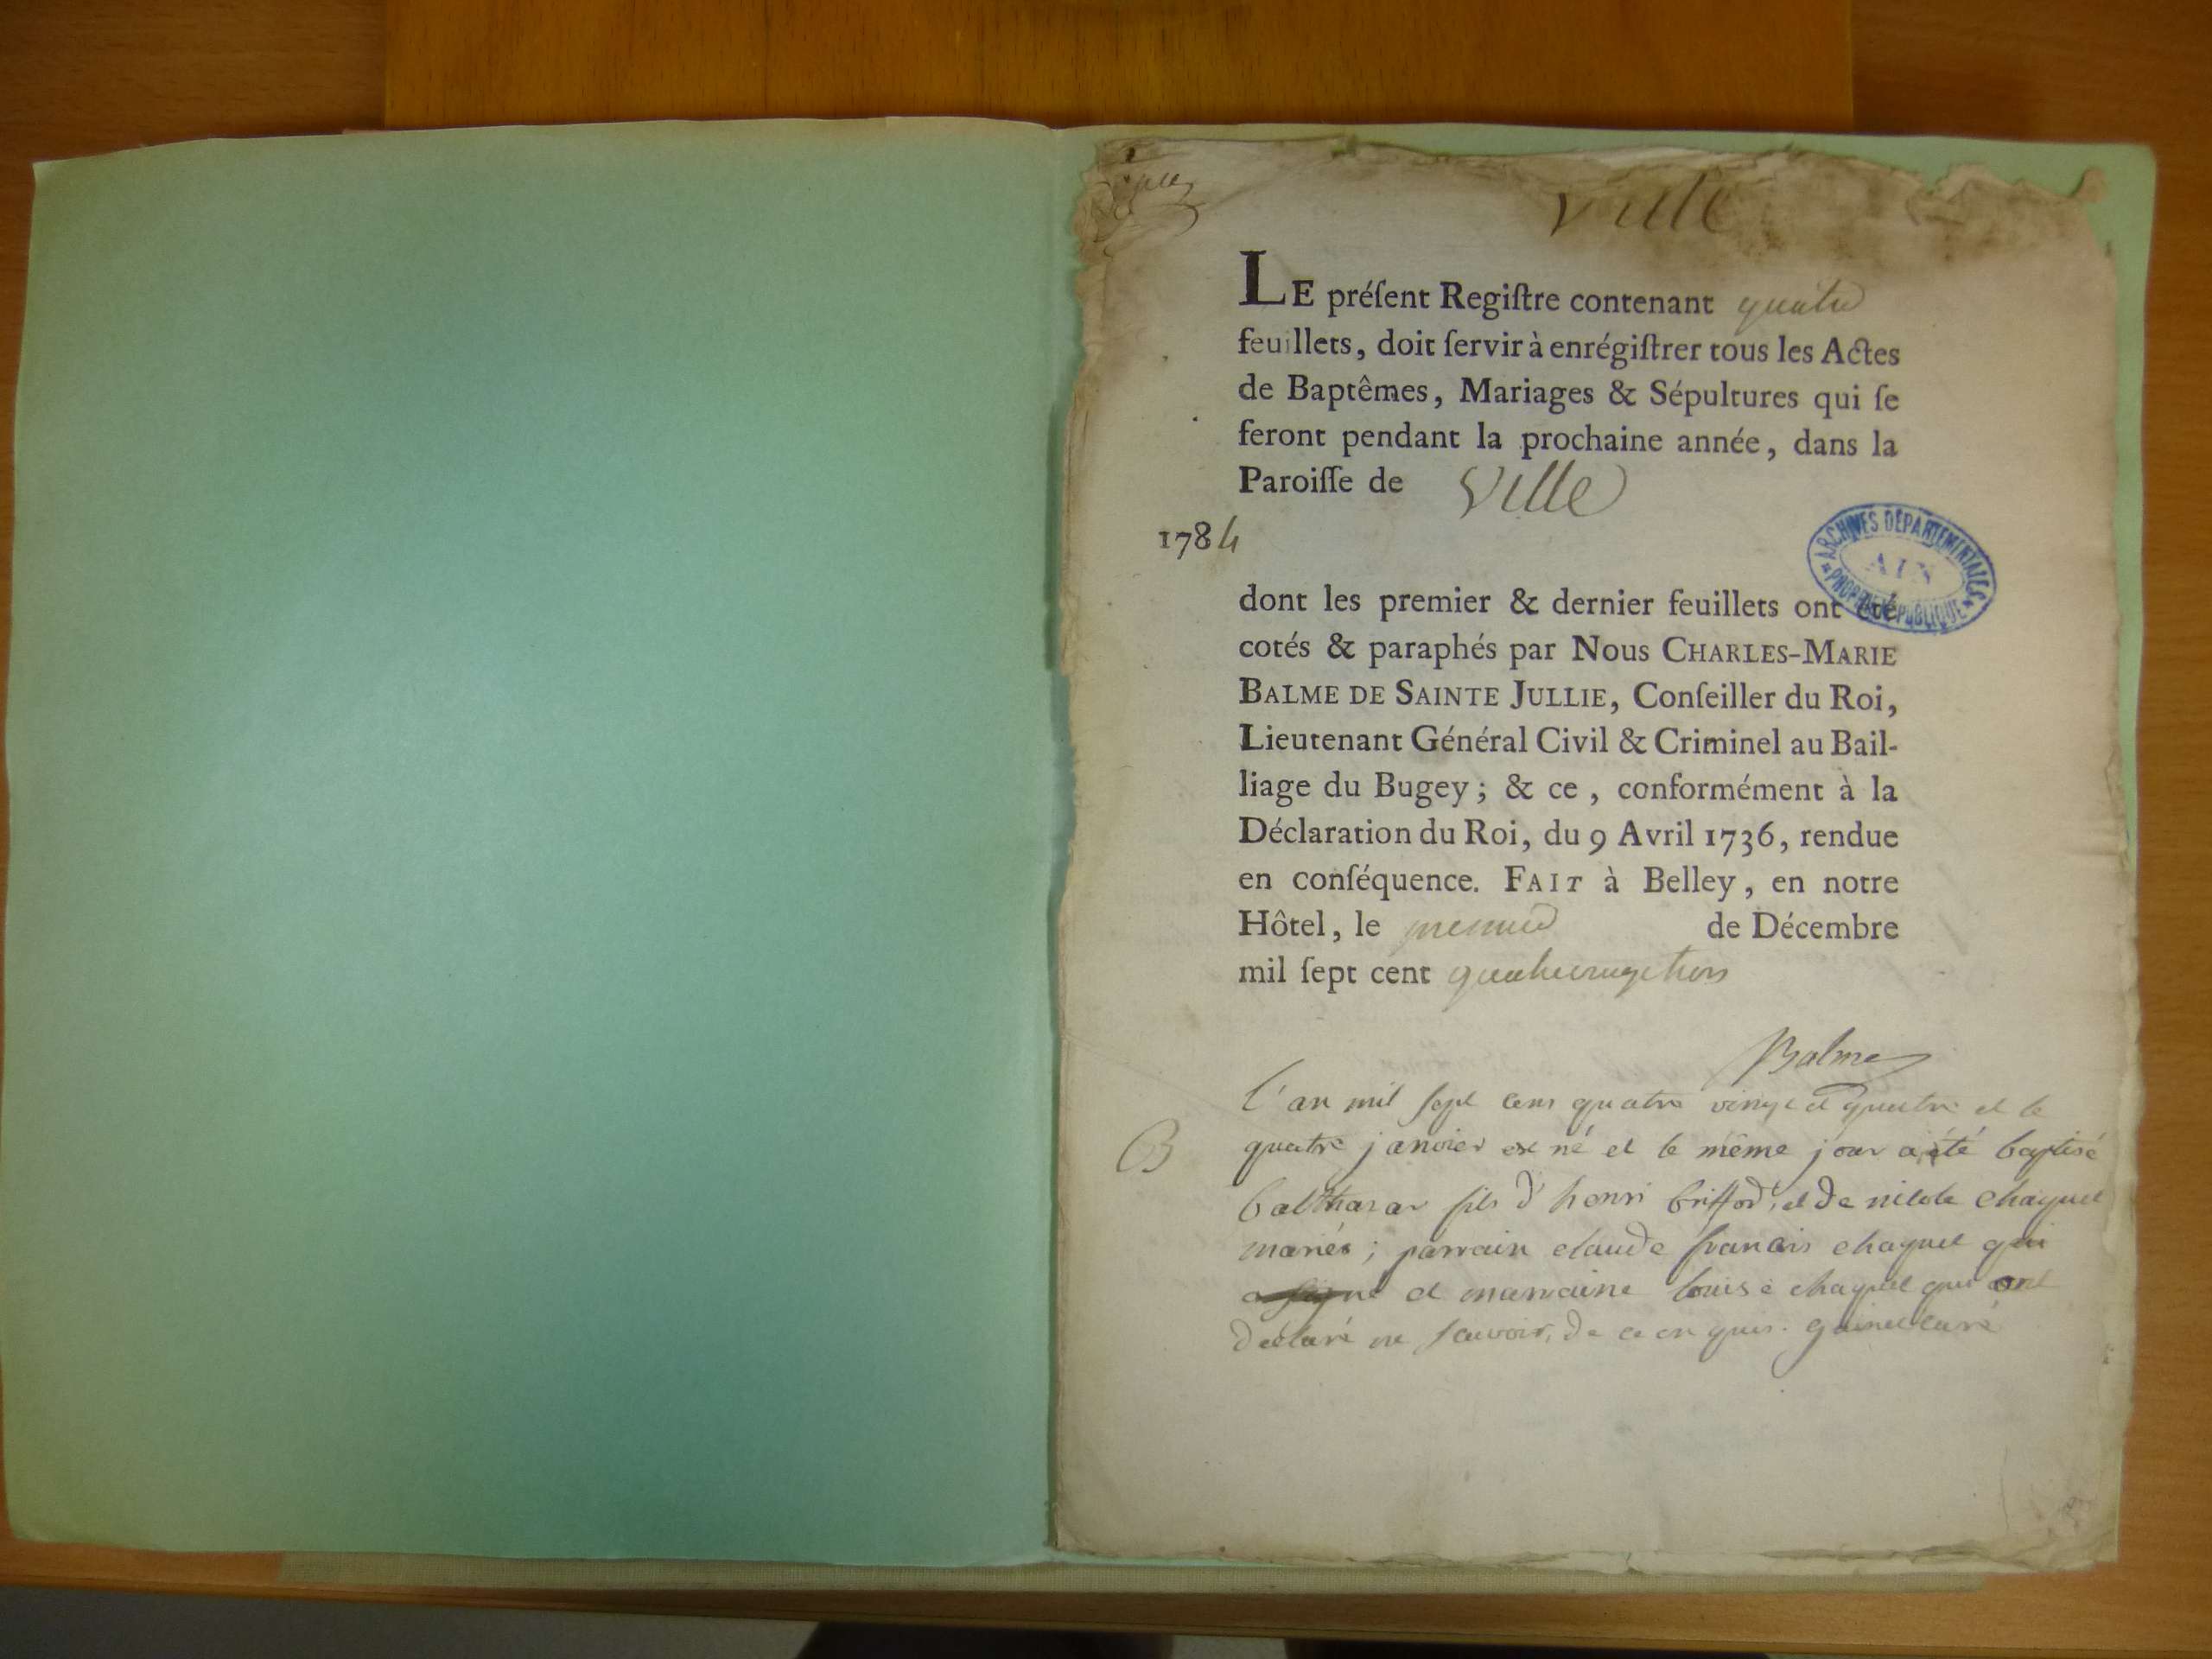 Ville
LE préſent Regiſtre contenant quatre
feuillets, doit ſervir à enrégiſtrer tous les Actes
de Baptêmes, Mariages & Sépultures qui ſe
feront pendant la prochaine année, dans la
Paroiſſe de Ville
1784
ARCHIVES DÉPARTEMENTALES
AIN
PROPRIÉTÉ PUBLIQUE
dont les premier & dernier feuillets ont été
cotés & paraphés par Nous CHARLES-MARIE
BALME DE SAINTE JULLIE, Conſeiller du Roi,
Lieutenant Général Civil & Criminel au Bail-
liage du Bugey; & ce, conformément à la
Déclaration du Roi, du 9 Avril 1736, rendue
en conſéquence. FAIT à Belley, en notre
Hôtel, le premier de Décembre
mil ſept cent quatrevingttrois
Balme
L'an mil sept cens quatre vingt et quatre et le
B quatre janvier est né et le même jour a été baptisé
balthazar fils d'henri briffod, et de nicole chaquet
mariés; parrain claude francois chaquet qui
a signé et marraine louise chaquet qui ont
déclaré ne scavoir, de ce enquis. curé